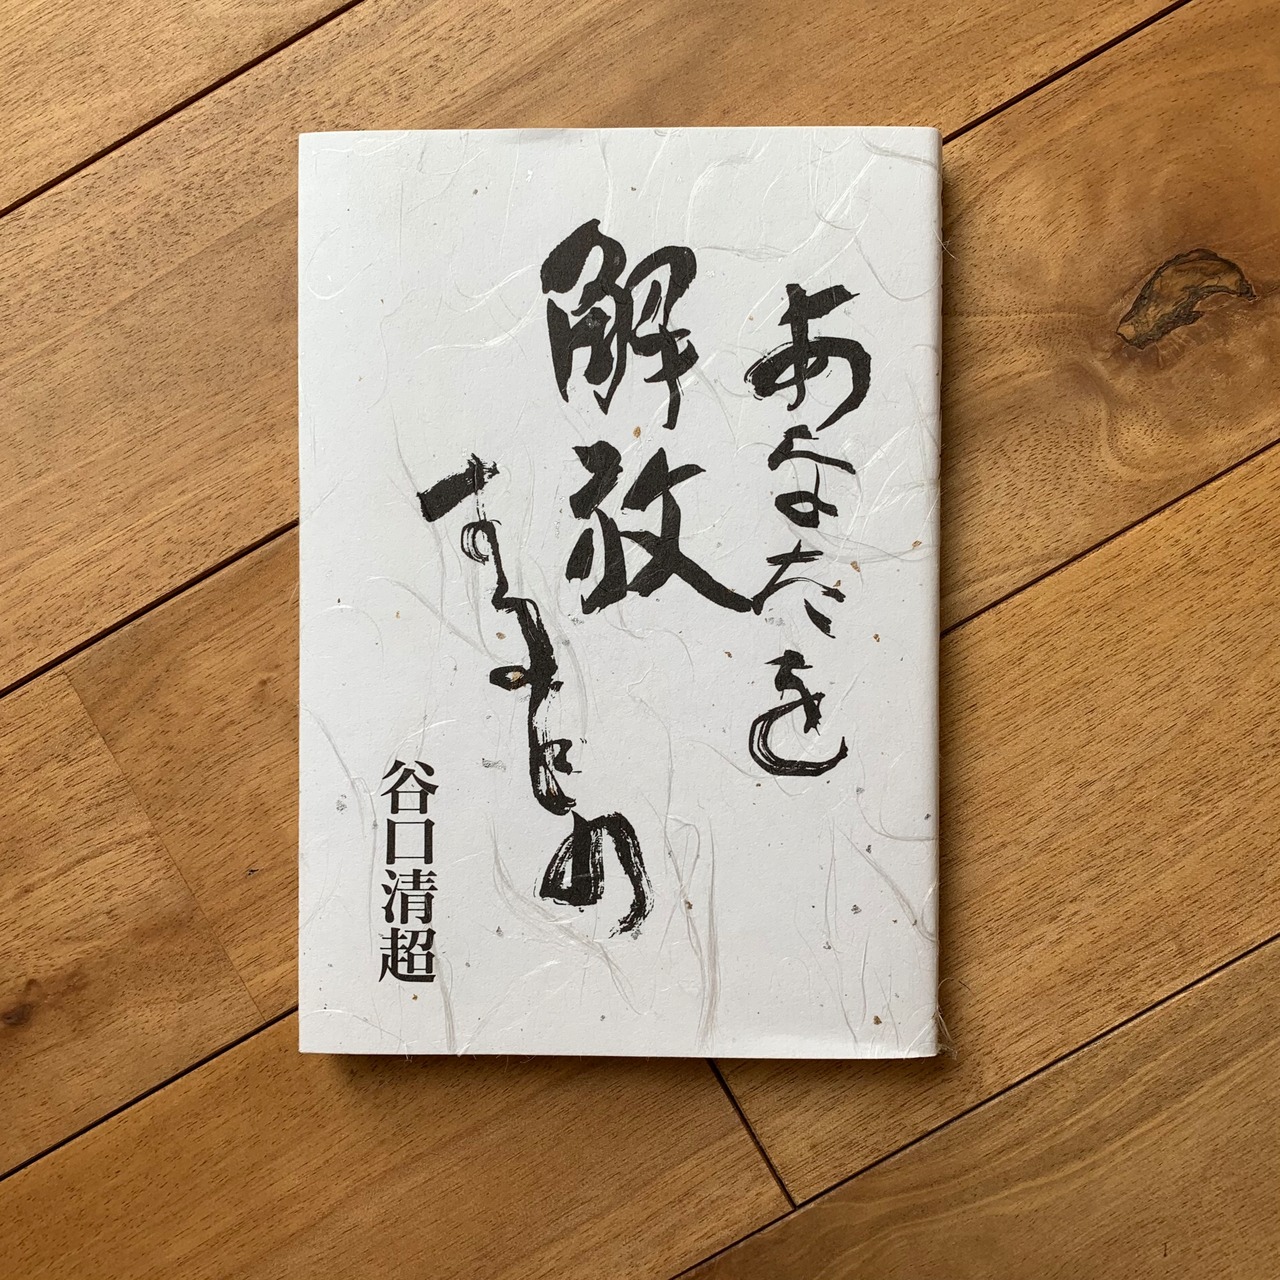 あなたを
解放
するために
谷口清超